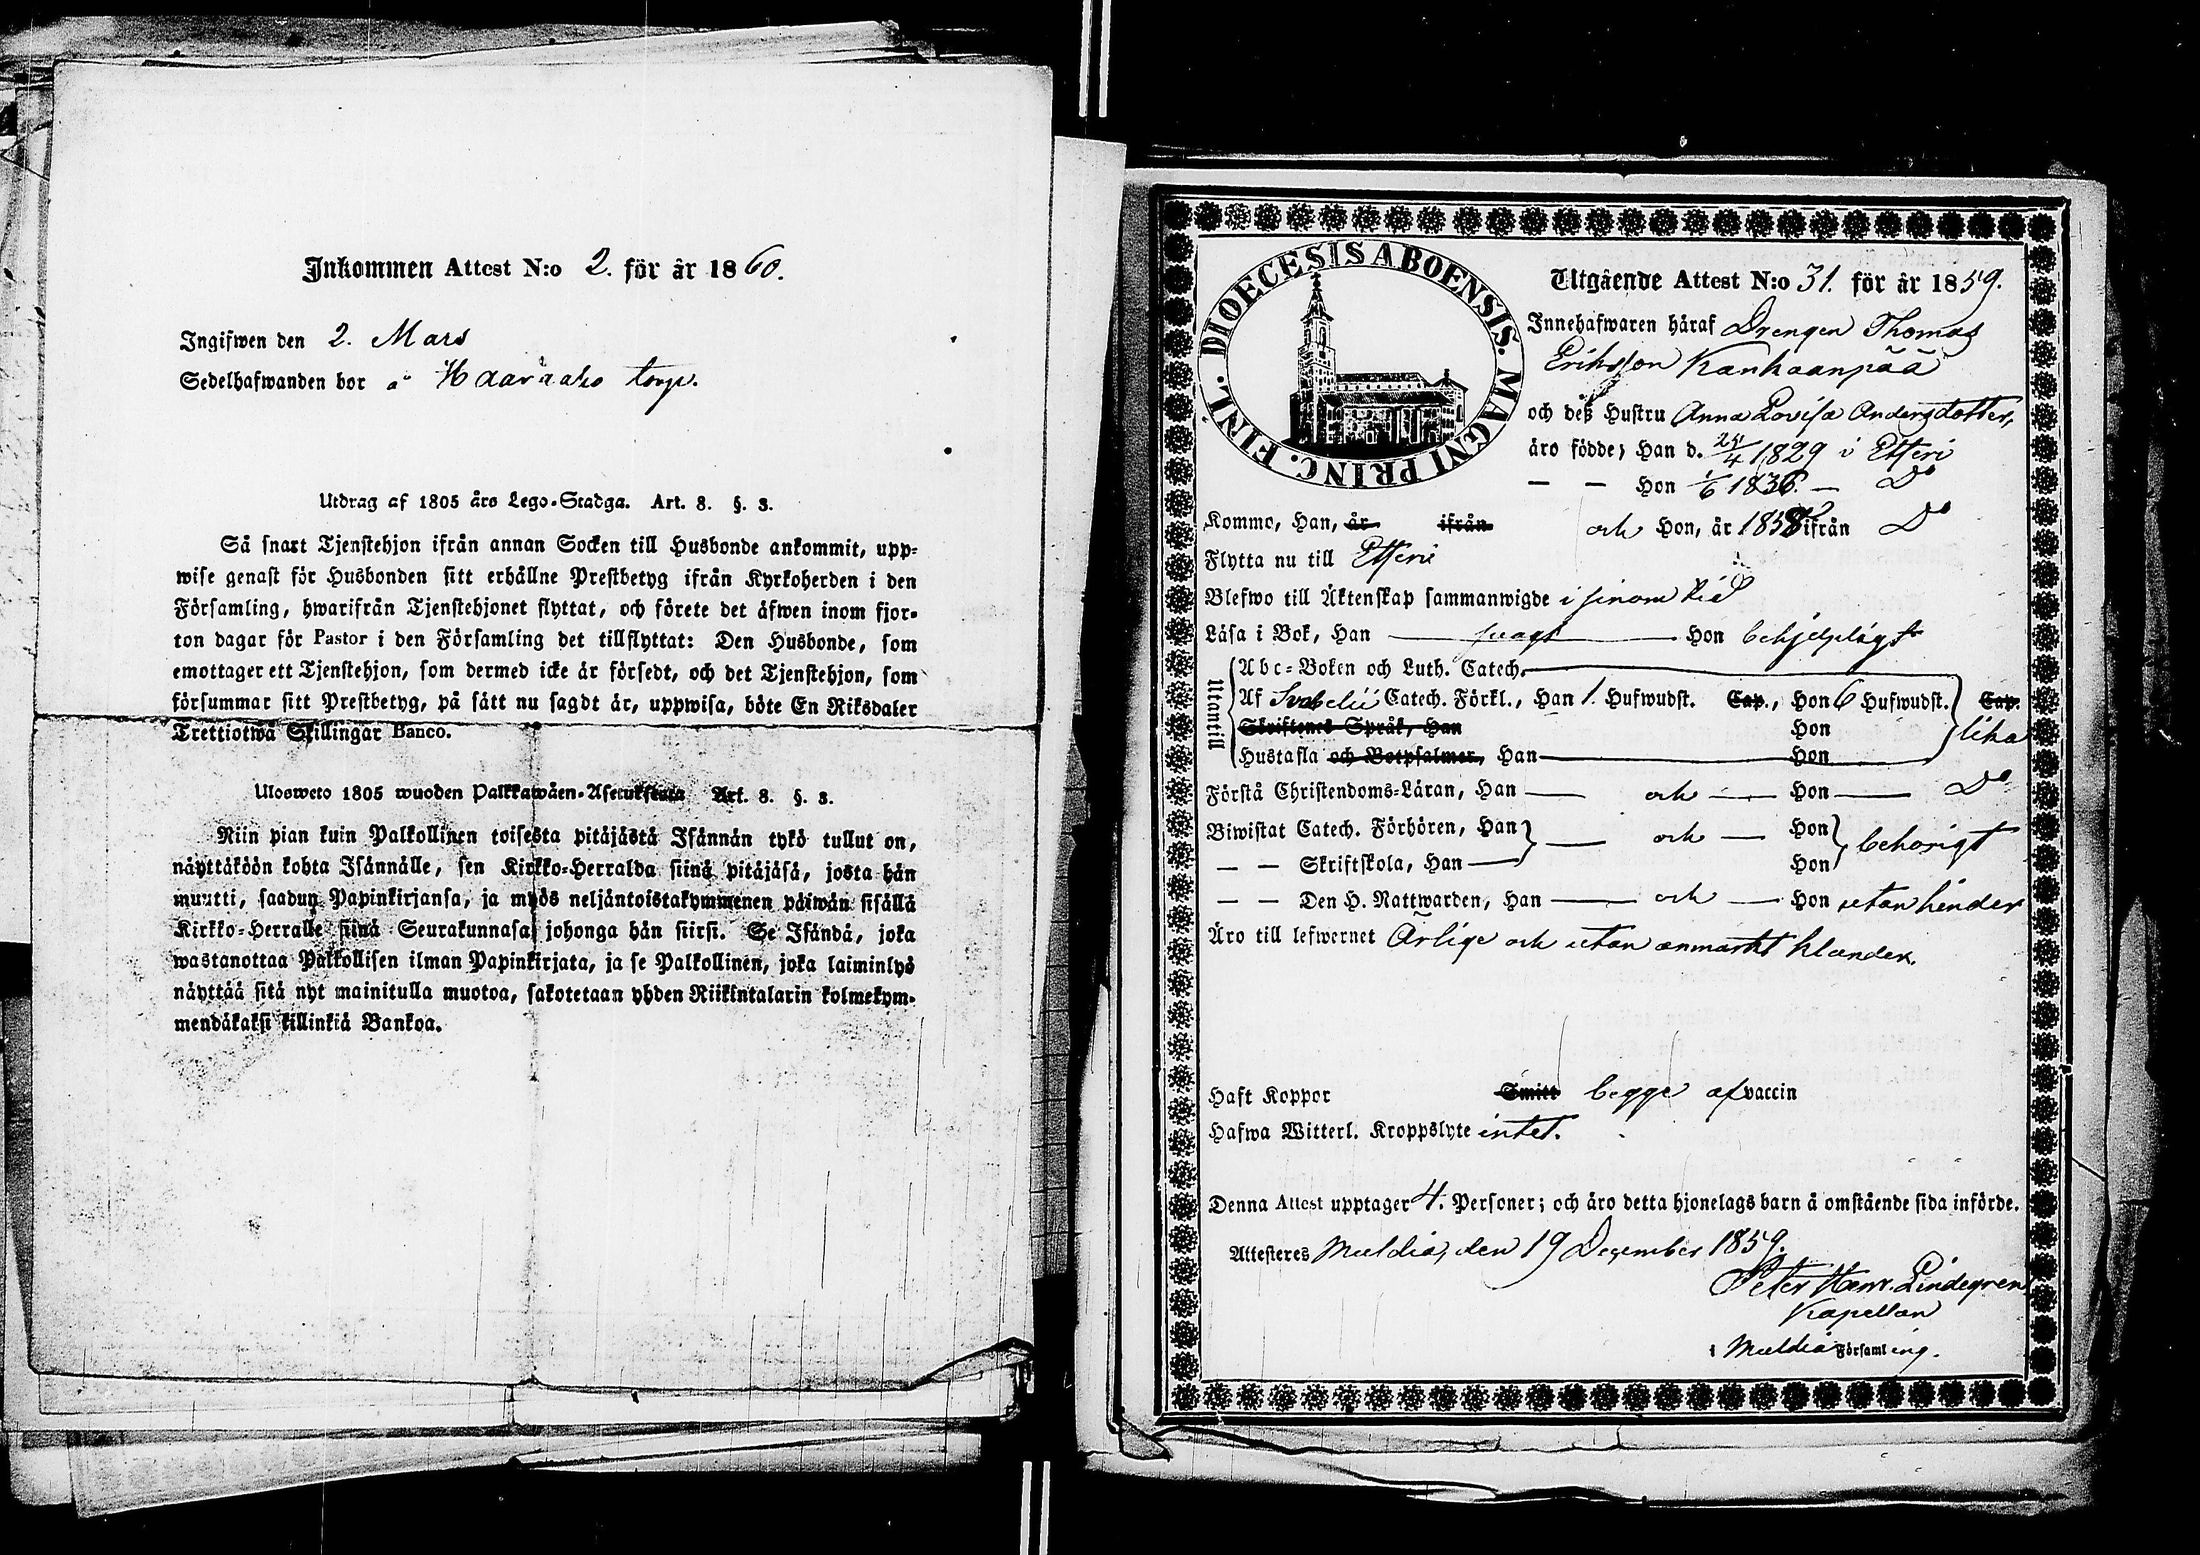 Inkommen Attest N:o 2. för år 1860.
Ingifwen den 2. Mars
Sedelhafwanden bor å Haaraaho torp.
Utdrag af 1805 års Lego-Stadga. Art. 8. §. 3.
Så snart Tjenstehjon ifrån annan Socken till Husbonde ankommit, upp-
wise genast för Husbonden sitt erhållne Prestbetyg ifrån Kyrkoherden i den
Församling, hwarifrån Tjenstehjonet flyttat, och förete det äfwen inom fjor-
ton dagar för Pastor i den Församling det tillflyttat: Den Husbonde, som
emottager ett Tjenstehjon, som dermed icke är försedt, och det Tjenstehjon, som
försummar sitt Prestbetyg, på sätt nu sagdt är, uppwisa, böte En Riksdaler
Trettiotwå Skillingar Banco.
Ulosweto 1805 wuoden Palkkawäen-Asetuksesta Art. 8. §. 3.
Niin pian kuin Palkollinen toisesta pitäjästä Isännän tykö tullut on,
näyttäköön kohta Isännälle, sen Kirkko-Herralda siinä pitäjäsä, josta hän
muutti, saadun Papinkirjansa, ja myös neljäntoistakymmenen päiwän sisällä
Kirkko-Herralle siinä Seurakunnasa johonga hän siirsi. Se Isändä, joka
wastanottaa Palkollisen ilman Papinkirjata, ja se Palkollinen, joka laiminlyö
näyttää sitä nyt mainitulla muotoa, sakotetaan yhden Riikintalarin kolmekym-
mendäkaksi killinkiä Bankoa.
DIOECESIS ABOENSIS. MAGNI PRINC. FINL.
Utgående Attest N:o 31. för år 1859.
Innehafwaren häraf Drengen Thomas
Eriksson Kankaanpää
och deß Hustru Anna Lovisa Andersdotter,
äro födde; Han d. 25/4 1829 i Etseri
— — Hon 1/6 1836. — Do
Kommo, Han, år ifrån och Hon, år 1858 ifrån Do
Flytta nu till Etseri
Blefwo till Äktenskap sammanwigde i sinom tid
Läsa i Bok, Han — svagt — Hon behjelpligt
Utantill
Abc-Boken och Luth. Catech.
Af Svebelii Catech. Förkl., Han 1. Hufwudst. Cap., Hon 6 Hufwudst. Cap.
Skriftenes Språk, Han Hon lika
Hustafla och Botpsalmer, Han — Hon
Förstå Christendoms-Läran, Han — och — Hon — Do
Biwistat Catech. Förhören, Han — och — Hon behörigt
— — Skriftskola, Han — Hon
— — Den H. Nattwarden, Han — och — Hon utan hinder
Äro till lefwernet Ärlige och utan anmärkt klander.
Haft Koppor Smitt begge af vaccin
Hafwa Witterl. Kroppslyte intet.
Denna Attest upptager 4. Personer; och äro detta hjonelags barn å omstående sida införde.
Attesteres Muldia, den 19 December 1859.
Peter Henr. Lindegren
Kapellan
i Muldia Församling.